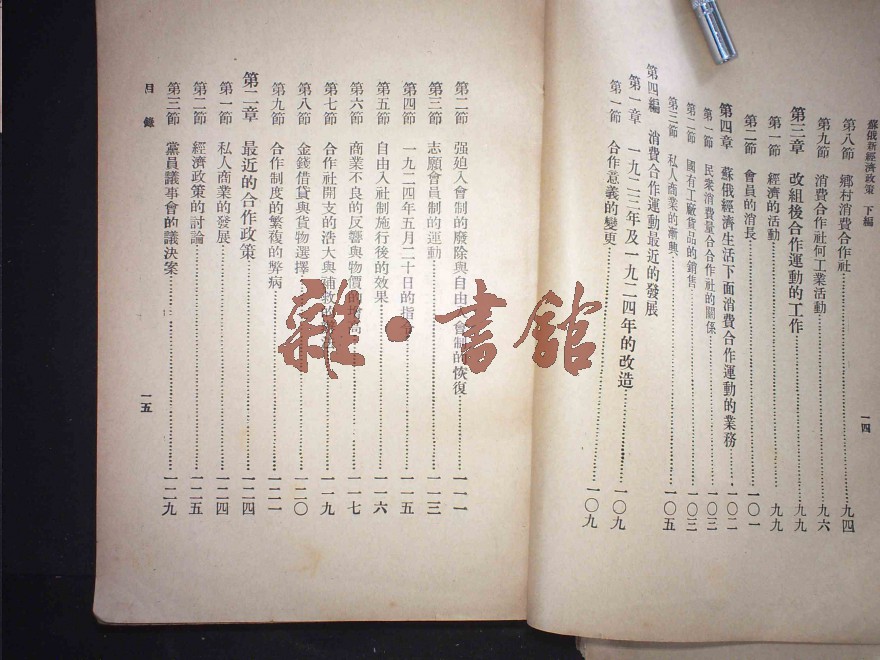 蘇俄新經濟政策 下編
一四
第八節 鄉村消費合作社……九四
第九節 消費合作社何工業活動……九六
第三章 改組後合作運動的工作……九九
第一節 經濟的活動……九九
第二節 會員的消長……一〇一
第四章 蘇俄經濟生活下面消費合作運動的業務……一〇二
第一節 民衆消費量合合作社的關係……一〇三
第二節 國有工廠貨品的銷售……一〇三
第三節 私人商業的漸興……一〇五
第四編 消費合作運動最近的發展
第一章 一九二三年及一九二四年的改造……一〇九
第一節 合作意義的變更……一〇九
第二節 强迫入會制的廢除與自由會制的恢復……一一一
第三節 志願會員制的運動……一一三
第四節 一九二四年五月二十日的指令……一一五
第五節 自由入社制施行後的效果……一一六
第六節 商業不良的反響與物價的高……一一七
第七節 合作社開支的浩大與補救的……一一九
第八節 金錢借貸與貨物選擇……一二〇
第九節 合作制度的繁複的弊病……一二一
第二章 最近的合作政策……一二四
第一節 私人商業的發展……一二四
第二節 經濟政策的討論……一二五
第三節 黨員議事會的議決案……一二九
目錄
一五
雜·書館